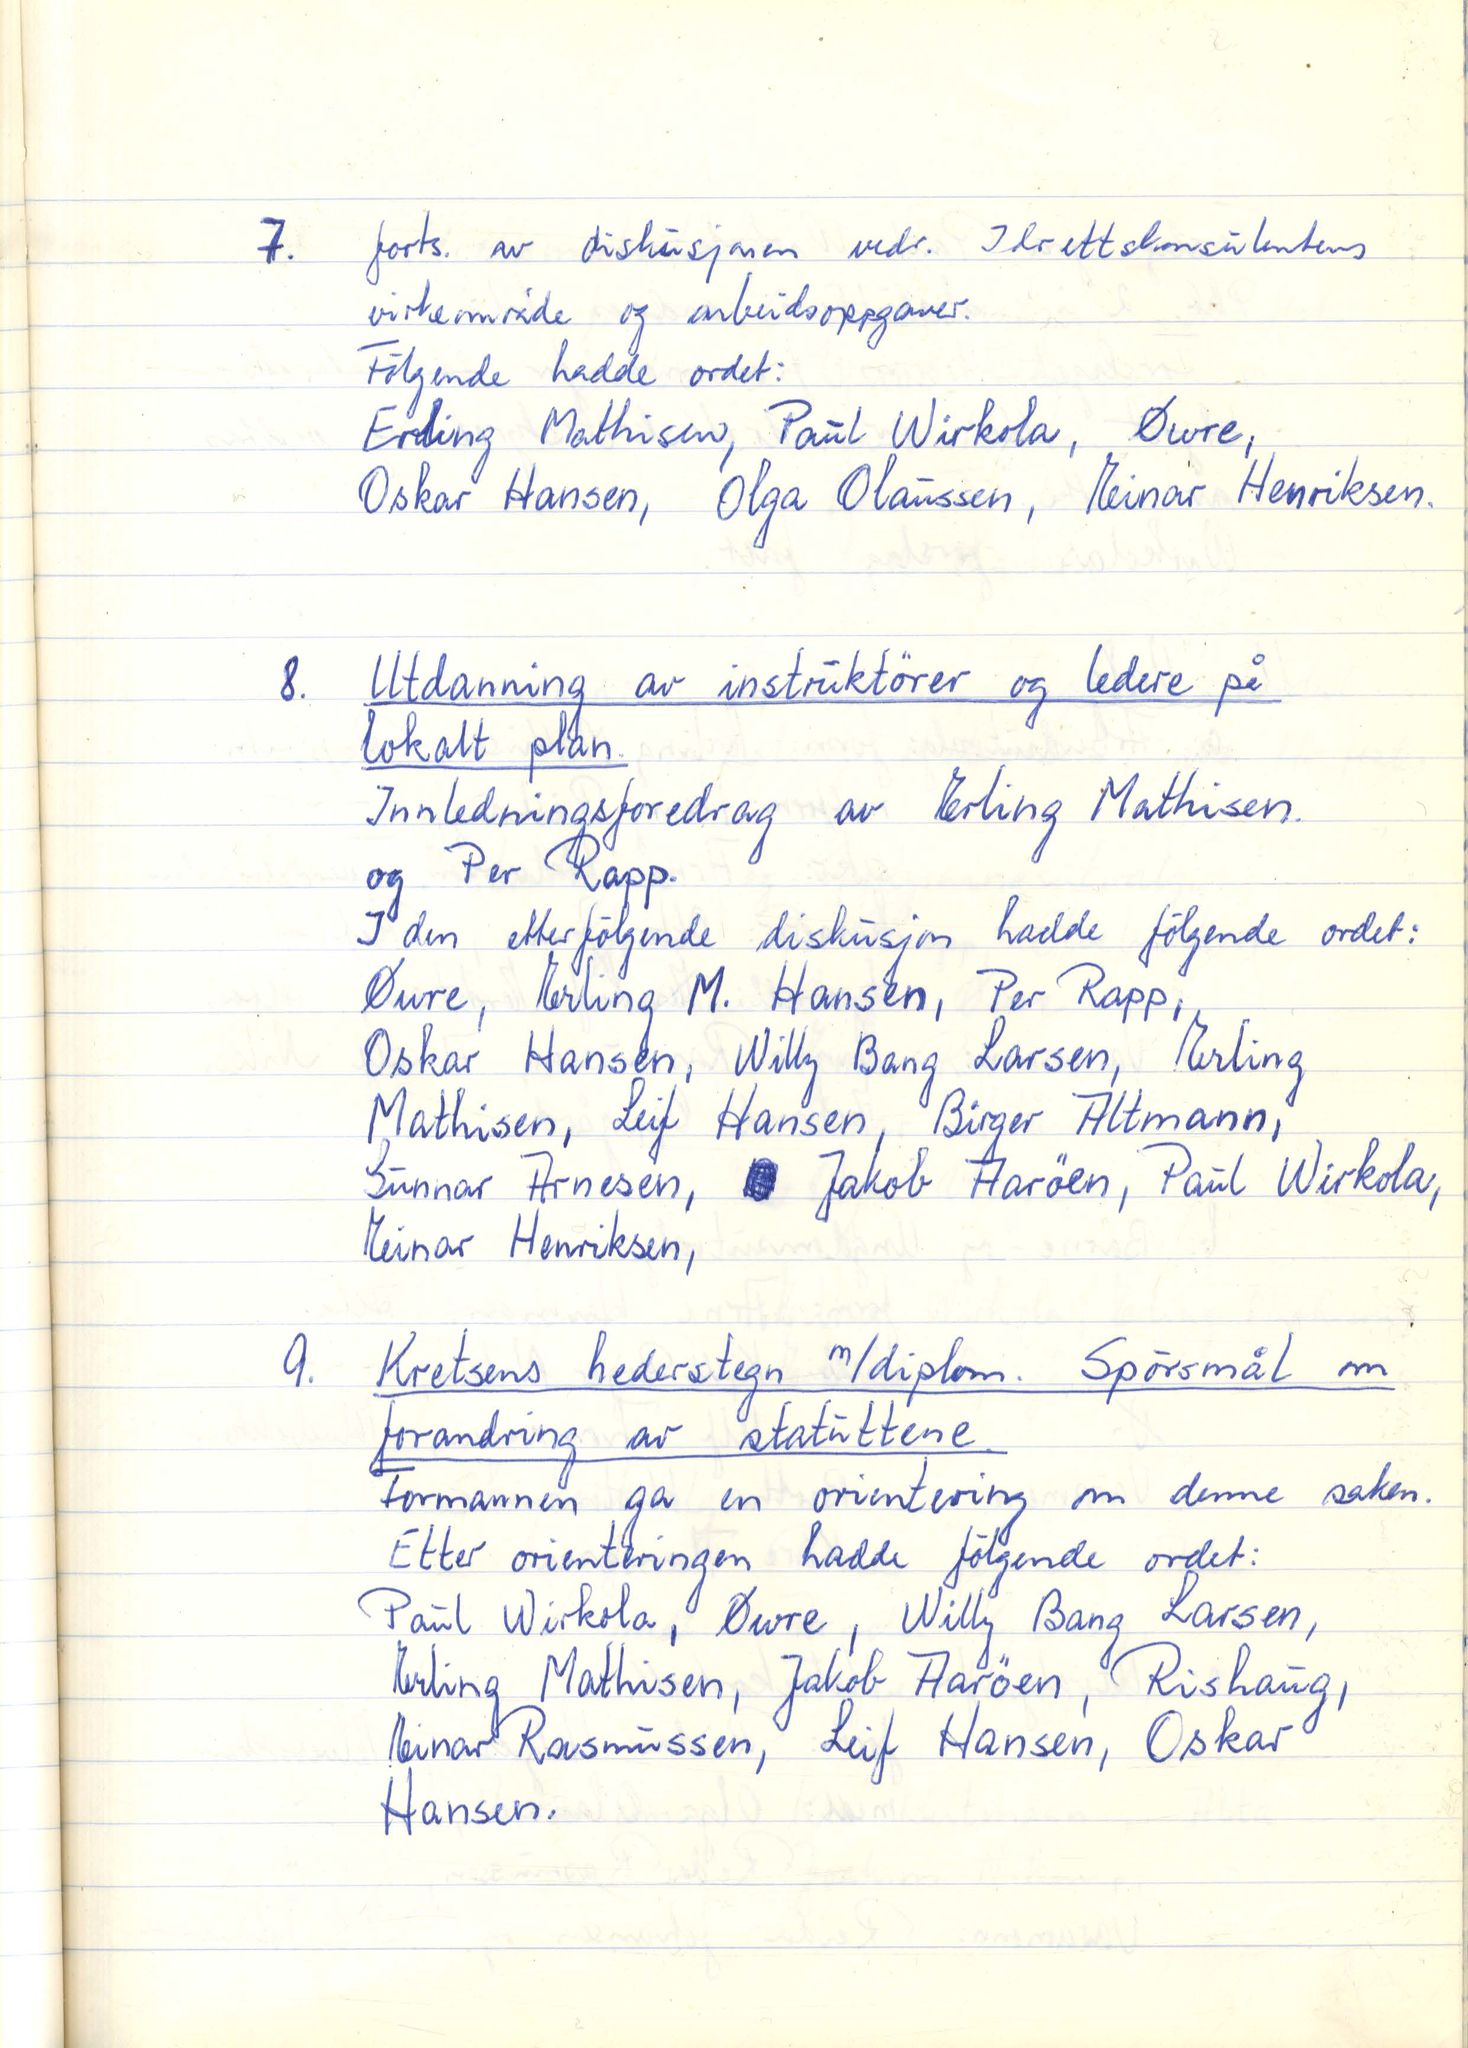 7. forts. av diskusjonen vedr. Idrettskonsulentens
virkeområde og arbeidsoppgaver.
Følgende hadde ordet:
Erling Mathisen, Paul Wirkola, Øwre,
Oskar Hansen, Olga Olaussen, Einar Henriksen.
8. Utdanning av instruktörer og ledere på
lokalt plan.
Innledningsforedrag av Erling Mathisen.
og Per Rapp.
I den etterfölgende diskusjon hadde fölgende ordet:
Øwre, Erling M. Hansen, Per Rapp,
Oskar Hansen, Willy Bang Larsen, Erling
Mathisen, Leif Hansen, Birger Altmann,
Gunnar Arnesen, Jakob Aaröen, Paul Wirkola,
Einar Henriksen,
9. Kretsens hederstegn m/diplom. Spörsmål om
forandring av statuttene.
Formannen ga en orientering om denne saken.
Etter orienteringen hadde fölgende ordet:
Paul Wirkola, Øwre, Willy Bang Larsen,
Erling Mathisen, Jakob Aaröen, Rishaug,
Einar Rasmussen, Leif Hansen, Oskar
Hansen.